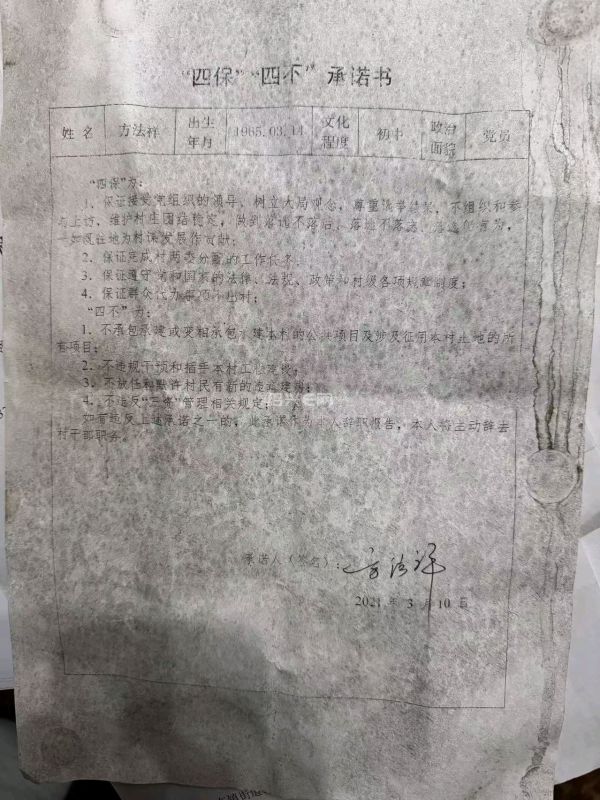 “四保”“四不”承诺书
姓名 方法祥 出生年月 1965.03.14 文化程度 初中 政治面貌 党员
“四保”为：
1、保证接受党组织的领导，树立大局观念，尊重选举结果，不组织和参
与上访，维护村庄团结稳定，做到落 不落后、落选不落志、
一如既往地为村谋发展作贡献；
2、保证完成村两委分配的工作任务；
3、保证遵守党和国家的法律、法规、政策和村级各项规章制度；
4、保证群众代办事项不出村；
“四不”为：
1、不承包承建或变相承包承建本村的公共项目及涉及征用本村土地的所
有项目；
2、不违规干预和插手本村工程建设；
3、不放任和默许村民有新的违章建筑；
4、不违反“三资”管理相关规定；
如有违反上述承诺之一的，此承诺作为本人辞职报告，本人将主动辞去
村干部职务。
承诺人（签名）：方法祥
2021 年 3 月 10 日
E网